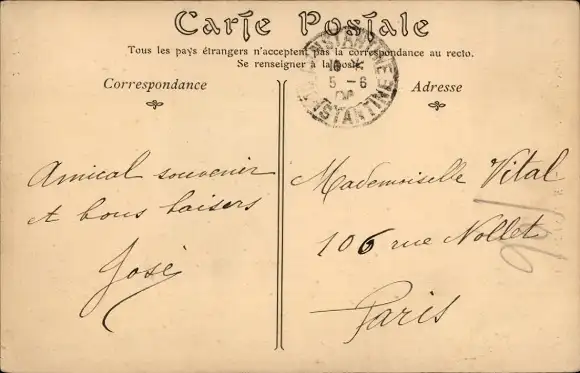 Carte Postale
Tous les pays étrangers n'acceptent pas la correspondance au recto.
Se renseigner à la poste
Correspondance
Adresse
CONSTANTINE
5 -6
CONSTANTINE
Amical souvenir
et bons baisers
José
Mademoiselle Vital
106 rue Nollet
Paris